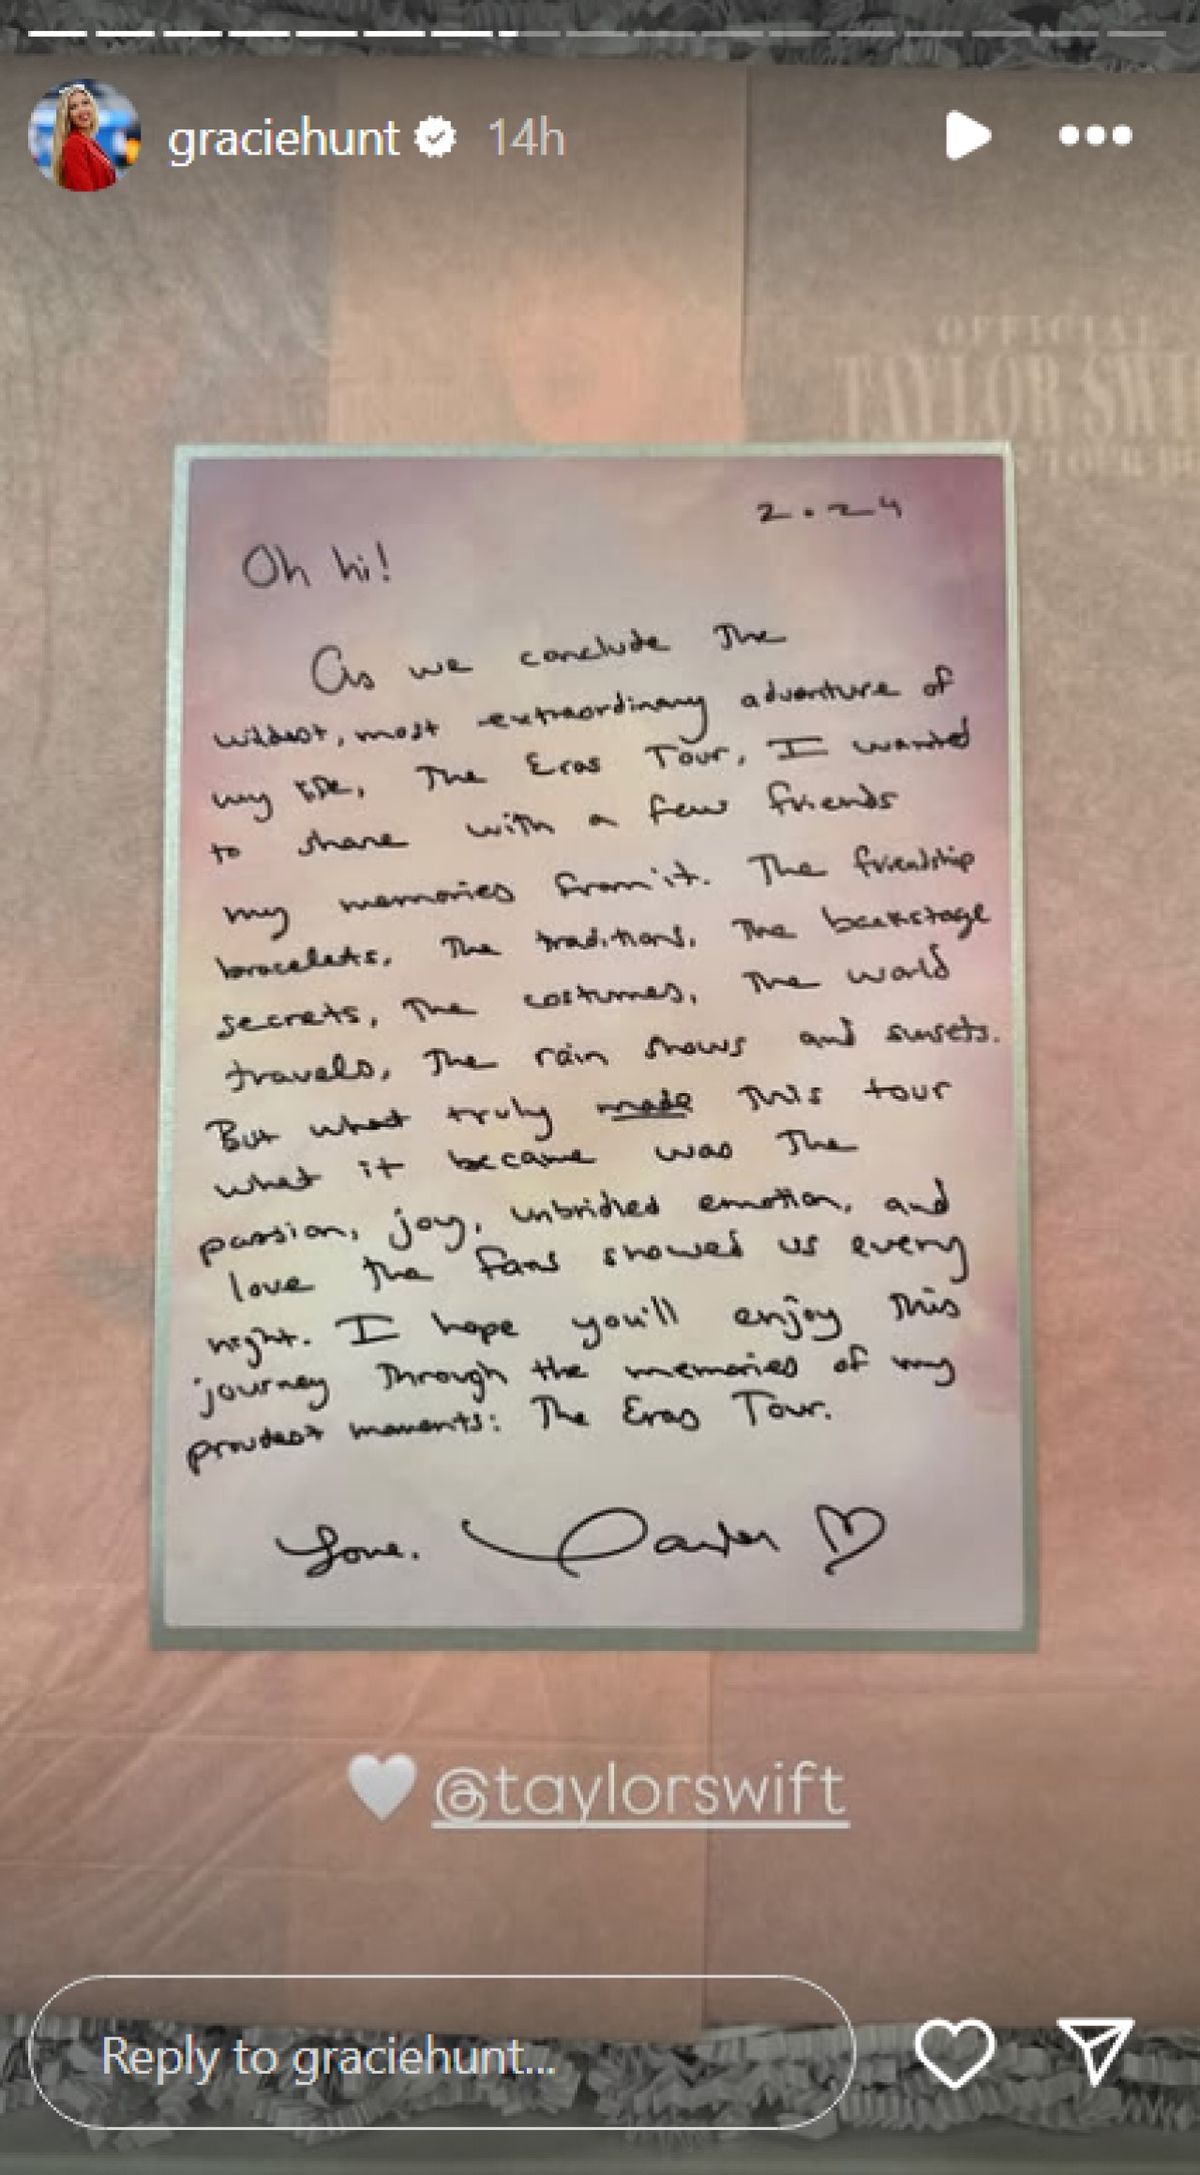 graciehunt 14h
OFFICIAL
TAYLOR SWI
TOUR B
2.24
Oh hi!
As we conclude The
wildest, most extraordinary adventure of
my life, The Eras Tour, I wanted
to share with a few friends
my memories from it. The friendship
bracelets, The traditions, The backstage
secrets, The costumes, The world
travels, The rain shows and sunsets.
But what truly made This tour
what it became was The
passion, joy, unbridled emotion, and
love the fans showed us every
night. I hope you'll enjoy This
journey Through the memories of my
proudest moments: The Eras Tour.
Love, Taylor
@taylorswift
Reply to graciehunt...